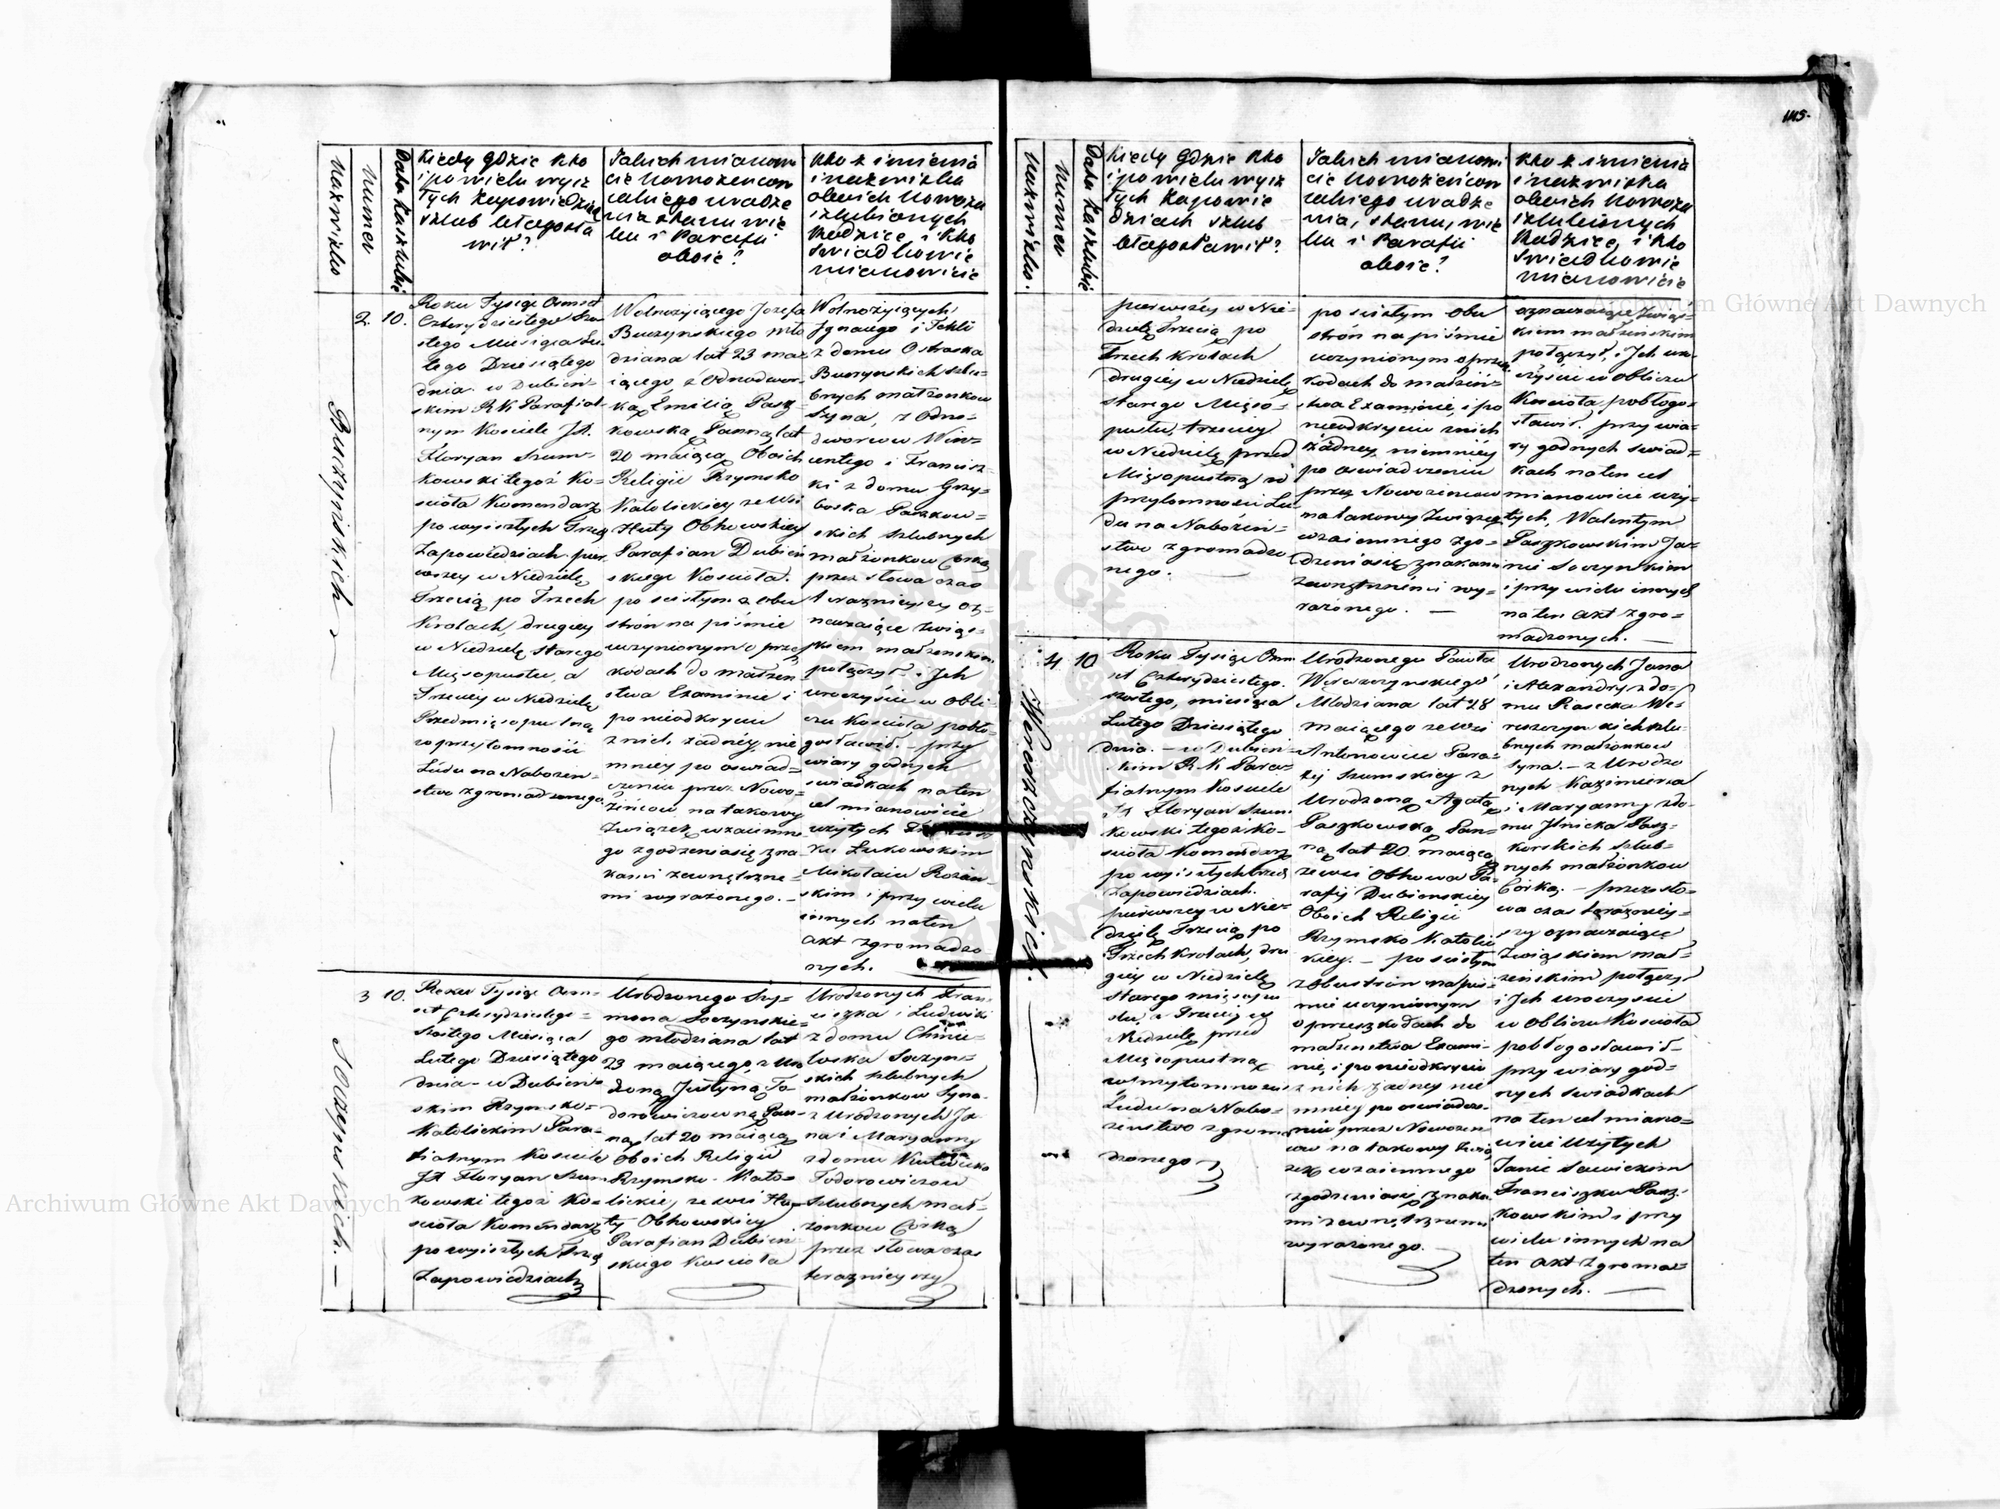 115.
Nazwisko
Numer
Data kaszlubie
Kiedy gdzie kto
i po wielu wysz
łych zapowiedziach
szlub błagosła
wił?
Jakich mianowi
cie Nowożeńcow
jakiego urodze
nia stanu, wie
ku i Parafii
oboie?
Kto z imienia
i nazwiska
oboich Nowoza
szlubionych
Rodzice, i kto
swiadkowie
mianowicie
Buczyńskich
2.
10.
Roku Tysiąc Osmset
Czterydziestego Szo
stego Miesiąca Lu
tego Dziesiątego
dnia w Dubień-
skim R. K. Parafial
nym Kosciele JX.
Floryan Szum-
kowski tegoż Ko-
scioła Komendarz
po wyiszłych trzech
Zapowiedziach pier
wszey w Niedzielę
Trzecią po Trzech
Krolach, drugiey
w Niedzielę Starego
Mięsopustu, a
Trzeciey w Niedzielę
Przedmięsopustną
w przytomności
Ludu na Nabożen-
stwo zgromadzonego.
Wolnożyiącego Jozefa
Buczynskiego mło
dziana lat 23 ma-
iącego z Odnodwor-
ką Emilią Pasz-
kowską Panną lat
20 maiącą Oboich
Religii Rzymsko
Katolickiey ze Wsi
Huty Obhowskiey
Parafian Dubień
skiego Kościoła.
po scisłym z obu
stron na piśmie
uczynionym o prze
kodach do małżen
stwa Examinie i
po nieodkryciu
z nich żadney, nie
mniey po oswiad-
czeniu przez Nowo-
żeńcow na takowy
Związek wzaiemne
go zgodzenia się zna
kami zewnętrzne-
mi wyrażonego. -
Wolnożyiących
Ignacego i Tekli
z domu Ostraska
Buczynskich szlu-
bnych małżonkow
Syna, z Odno-
dworcow Win-
centego i Francisz-
ki z domu Grzy-
boska Paszkow-
skich szlubnych
małżonkow Corką
przez słowa czas
teraznieyszy oz-
naczaiące związ-
kiem małżenskim
połączył i Ich
uroczyscie w obli-
czu Kościoła pobło-
gosławił. - przy
wiary godnych
swiadkach na ten
cel mianowicie
użytych
Lukowskim
Mikołaiu Rozan-
skim i przy wielu
innych na ten
akt zgromadzo
nych.
Soczynskich. -
3
10.
Roku Tysiąc Osm-
set Czterydziestego
Szostego Miesiąca
Lutego Dziesiątego
dnia - w Dubien-
skim Rzymsko-
Katolickim Para-
fialnym Kosciele
JX Floryan Szum
kowski tegoż Ko-
scioła Komendarz
po wyiszłych trzech
Zapowiedziach
Urodzonego Szy-
mona Soczynskie-
go młodziana lat
23 maiącego z Uro
dzoną Justyną To-
dorowiczowną Pan-
ną lat 20 maiącą
Oboich Religii
Rzymsko-Kato-
lickiey, ze wsi Hu-
ty Obhowskiey
Parafian Dubien
skiego Kościoła
Urodzonych Fran
ciszka i Ludwiki
z domu Chmie-
lowska Soczyn-
skich szlubnych
małżonkow Syna.
z Urodzonych Ja
na i Maryanny
z domu
Todorowiczow
szlubnych mał-
żonkow Corką
przez słowa czas
teraznieyszy
Nazwisko.
Numer
Data kaszlubie
Kiedy gdzie kto
i po wielu wysz
łych zapowie
dziach szlub
błagosławił?
Jakich mianowi
cie Nowożeńcow
jakiego urodze
nia, stanu, wie
ku i Parafii
oboie?
Kto z imienia
i nazwiska
oboich Nowoza
szlubionych
Rodzice, i kto
swiadkowie
mianowicie
pierwszey w Nie-
dzielę Trzecią po
Trzech Krolach
drugiey w Niedzielę
Starego Mięso-
pustu, trzeciey
w Niedzielę przed
Mięsopustną w
przytomności Lu
du na Nabożeń-
stwo zgromadzo
nego. -
po scisłym obu
strón na piśmie
uczynionym o przesz
kodach do małżeń-
stwa Examinie, i po
nieodkryciu z nich
żadney, niemniey
po oswiadczeniu
przez Nowożeńcow
na takowy Związek
wzaiemnego zgo-
dzenia się znakami
zewnętrznemi wy-
rażonego. -
oznaczaiące Związ-
kiem małżeńskim
połączył, i Ich uro-
czyście w obliczu
Kościoła pobłogo-
sławił. przy wia-
ry godnych swiad-
kach na ten cel
mianowicie uży-
tych, Walentym
Paszkowskim Ja-
nie Soczynskim
i przy wielu innych
na ten akt zgro-
madzonych. -
Wereszczynskich.
4
10
Roku Tysiąc Osm
set Czterydziestego
szostego, miesiąca
Lutego Dziesiątego
dnia. - w Dubien-
skim R. K. Para-
fialnym Kosciele
JX Floryan Szum
kowski tegoż Ko-
scioła Komendarz
po wyiszłych trzech
Zapowiedziach.
pierwszey w Nie-
dzielę Trzecią po
Trzech Krolach, dru
giey w Niedzielę
Starego mięsopu
stu, a Trzeciey w
Niedzielę przed
Mięsopustną
w przytomności
Ludu na Nabo-
żenstwo zgroma
dzonego
Urodzonego Pawła
Wereszczynskiego
Młodziana lat 28
maiącego ze wsi
Antonowiec Para-
fij Szumskiey z
Urodzoną Agatą
Paszkowską Pan-
ną lat 20. maiącą
ze wsi Obhowa Pa-
rafij Dubienskiey
Oboich Religii
Rzymsko Katolic
kiey. - po scisłym
z obu strón na piś-
mie uczynionym
o przeszkodach do
małżenstwa Exami-
nie, i po nieodkryciu
z nich żadney nie
mniey po oswiadcze-
niu przez Nowożeń-
cow na takowy Zwią
zek wzaiemnego
zgodzenia się znaka-
mi zewnętrznemi
wyrażonego.
Urodzonych Jana
i Alexandry z do-
mu Rasecka We-
reszczynskich szlu-
bnych małżonkow
Syna. - z Urodzo
nych Kazimierza
i Maryanny z do-
mu Ilnicka Pasz-
kowskich szlub-
nych małżonkow
Corką. - przez sło-
wa czas teraźniey-
szy oznaczaiące
Związkiem mał-
żeńskim połączył
i Ich uroczyscie
w obliczu Kościoła
pobłogosławił -
przy wiary god-
nych swiadkach
na ten cel miano-
wicie użytych
Janie Sawickim
Franciszku Pasz-
kowskim i przy
wielu innych na
ten akt zgroma-
dzonych. -
Archiwum Główne Akt Dawnych
Archiwum Główne Akt Dawnych